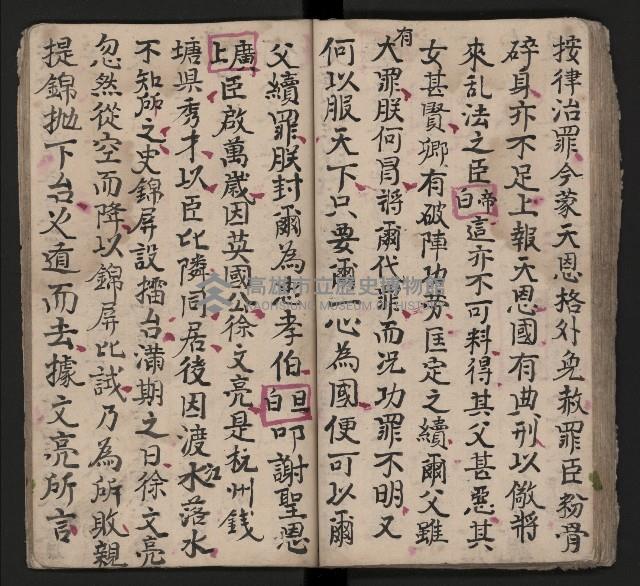 按律治罪今蒙天恩格外免赦罪臣粉骨
碎身亦不足上報天恩國有典刑以儆將
來乱法之臣帝白這亦不可料得其父甚惡其
女甚賢卿有破陣功劳匡定之續爾父雖
有大罪朕何冐將爾代罪而况功罪不明又
何以服天下只要爾一心為國便可以爾
父續罪朕封爾為孝伯旦白叩謝聖恩
廣上臣啟萬歲因英國公徐文亮是杭州錢
塘県秀才以臣比隣同居後因渡江水落水
不知所之史錦屏設擂台滿期之日徐文亮
忽然從空而降以錦屏比試乃為所敗親
提錦抛下台乂道而去據文亮所言
高雄市立歷史博物館
KAOHSIUNG MUSEUM OF HISTORY